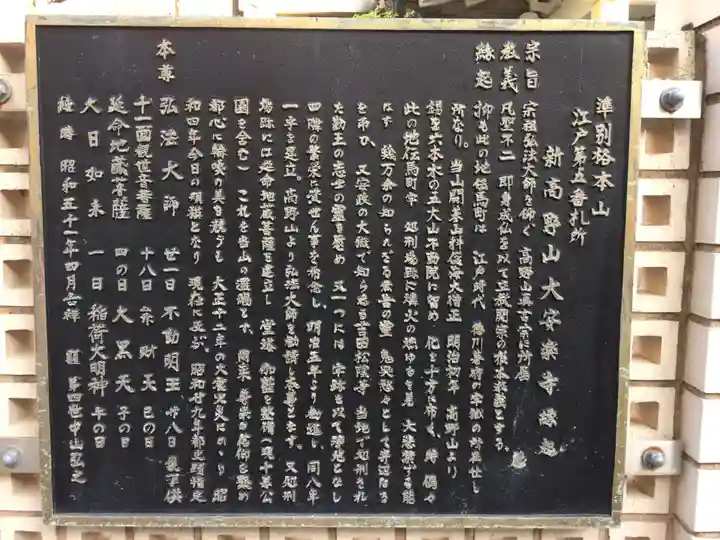 準別格本山
江戸第五番札所
新高野山大安楽寺縁起
宗旨 宗祖弘法大師を仰ぐ 高野山真言宗に所属
教義 凡聖不二 即身成仏を以て立教開宗の根本教義とする。
縁起 抑も此の地伝馬町は 江戸時代 徳川幕府の牢獄の所在せし
所なり。当山開基山科俊海大僧正 明治初年 高野山より
錫を六本木の五大山不動院に留め 化を十方に布く、時 偶々
此の地伝馬町牢 処刑場跡に燐火の燃ゆるを見 大悲禁ずる能
はず 幾万余の知られざる業苦の霊 鬼哭啾々として昇沈する
を弔ひ、又安政の大獄で知らるる吉田松陰等 当地で処刑され
た勤王の志士の霊を慰め 又一つには 牢跡を以て浄地となし
四隣の繁栄に資せん事を祈念し、明治五年より勧進し、同八年
一宇を建立。高野山より弘法大師を勧請し本尊とす。又処刑
場跡には延命地蔵菩薩を建立し 堂塔 伽藍を整備(現十思公
園を含む)これを当山の濫觴とす。爾来 善楽の信仰を聚め
都心に輪喚の美を競うも 大正十二年の大震災にのゝり 昭
和四年今日の頑構となり 現在に及ぶ。昭和廿九年都史跡指定
本尊 弘法大師 廿一日 不動明王 廿八日
十一面観世音菩薩 十八日 弁財天 巳の日
延命地蔵菩薩 四の日 大黒天 子の日
大日如来 一日 稲荷大明神 午の日
維時 昭和五十一年四月吉祥 第四世中山弘之